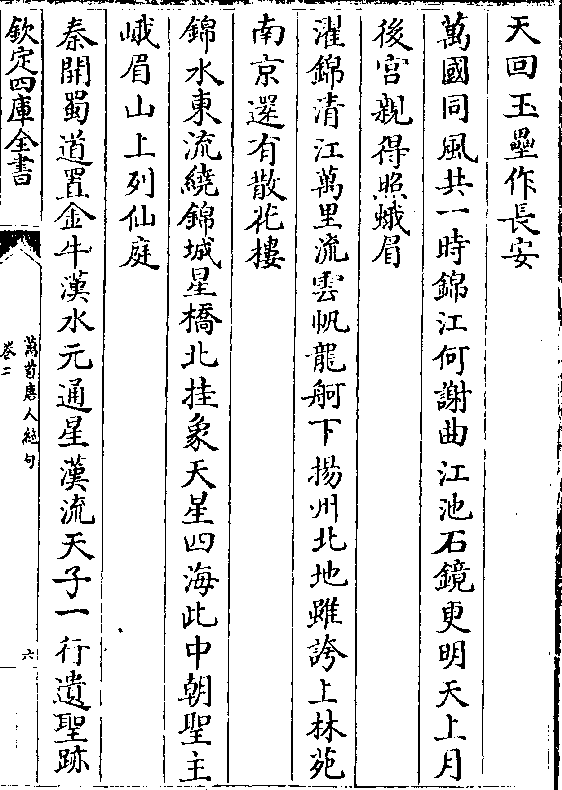 天回玉壘作長安
萬國同風共一時錦江何謝曲江池石鏡更明天上月
後宮親得照蛾眉
濯錦清江萬里流雲帆龍舸下揚州北地雖誇上林苑
南京還有散花樓
錦水東流繞錦城星橋北挂象天星四海此中朝聖主
峨眉山上列仙庭
秦開蜀道置金牛漢水元通星漢流天子一行遺聖跡
欽定四庫全書
萬首唐人絶句
卷二
六